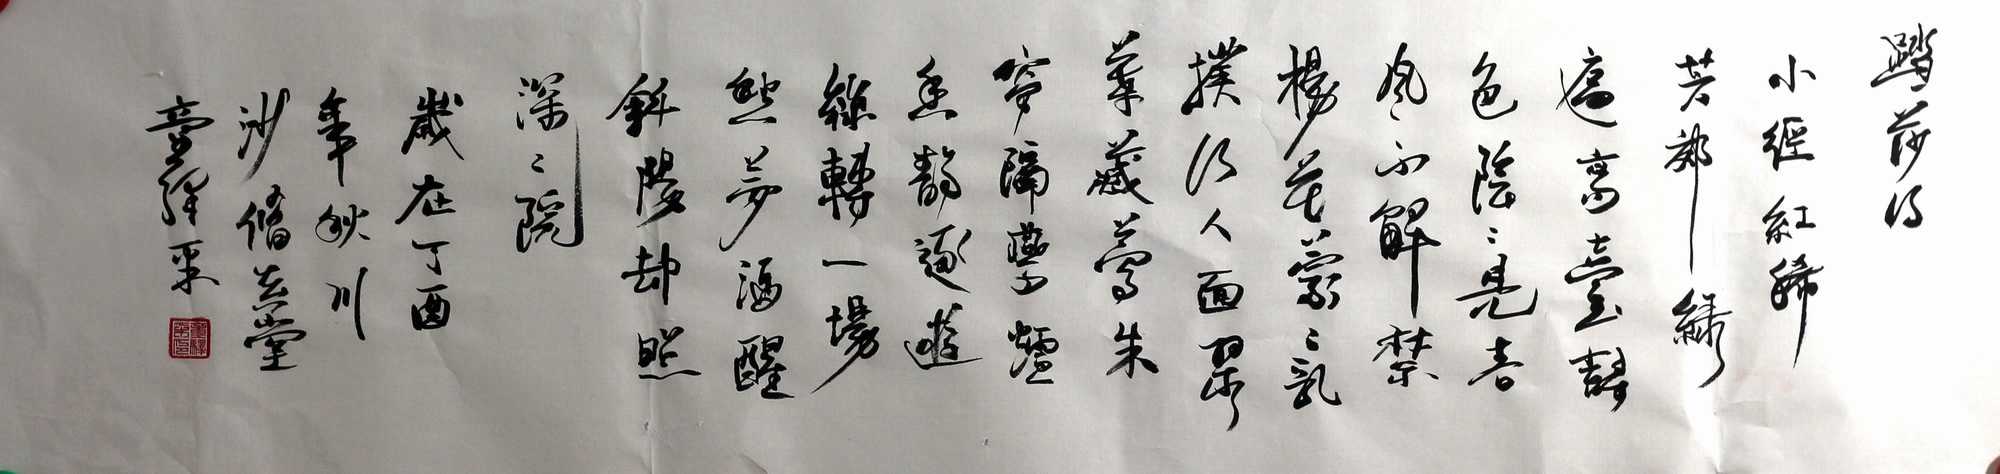 踏莎行
小經紅稀
芳郊綠
遍高臺樹
色陰〻見春
風不解禁
楊花蒙〻亂
撲行人面翠
葉藏鶯朱
簾隔燕爐
香靜逐遊
絲轉一場
愁夢酒醒
斜陽却照
深〻院
歲在丁酉
年秋川
沙脩堂
童